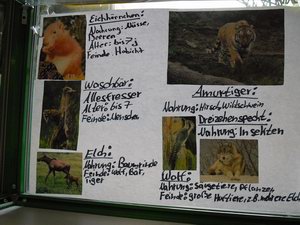 Eichhörnchen:
Nahrung: Nüsse,
Beeren
Alter: bis 7j
Feinde Habicht
Waschbär:
Allesfresser
Alter: bis 7
Feinde: Menschen
Elch:
Nahrung: Baumrinde
Feinde: Wolf, Bär,
Tiger
Amurtiger:
Nahrung: Hirsch, Wildschwein
Dreizehenspecht:
Nahrung: Insekten
Wolf:
Nahrung: Säugetiere, Pflanzen
Feinde: große Huftiere, z.B. mehrere Elche